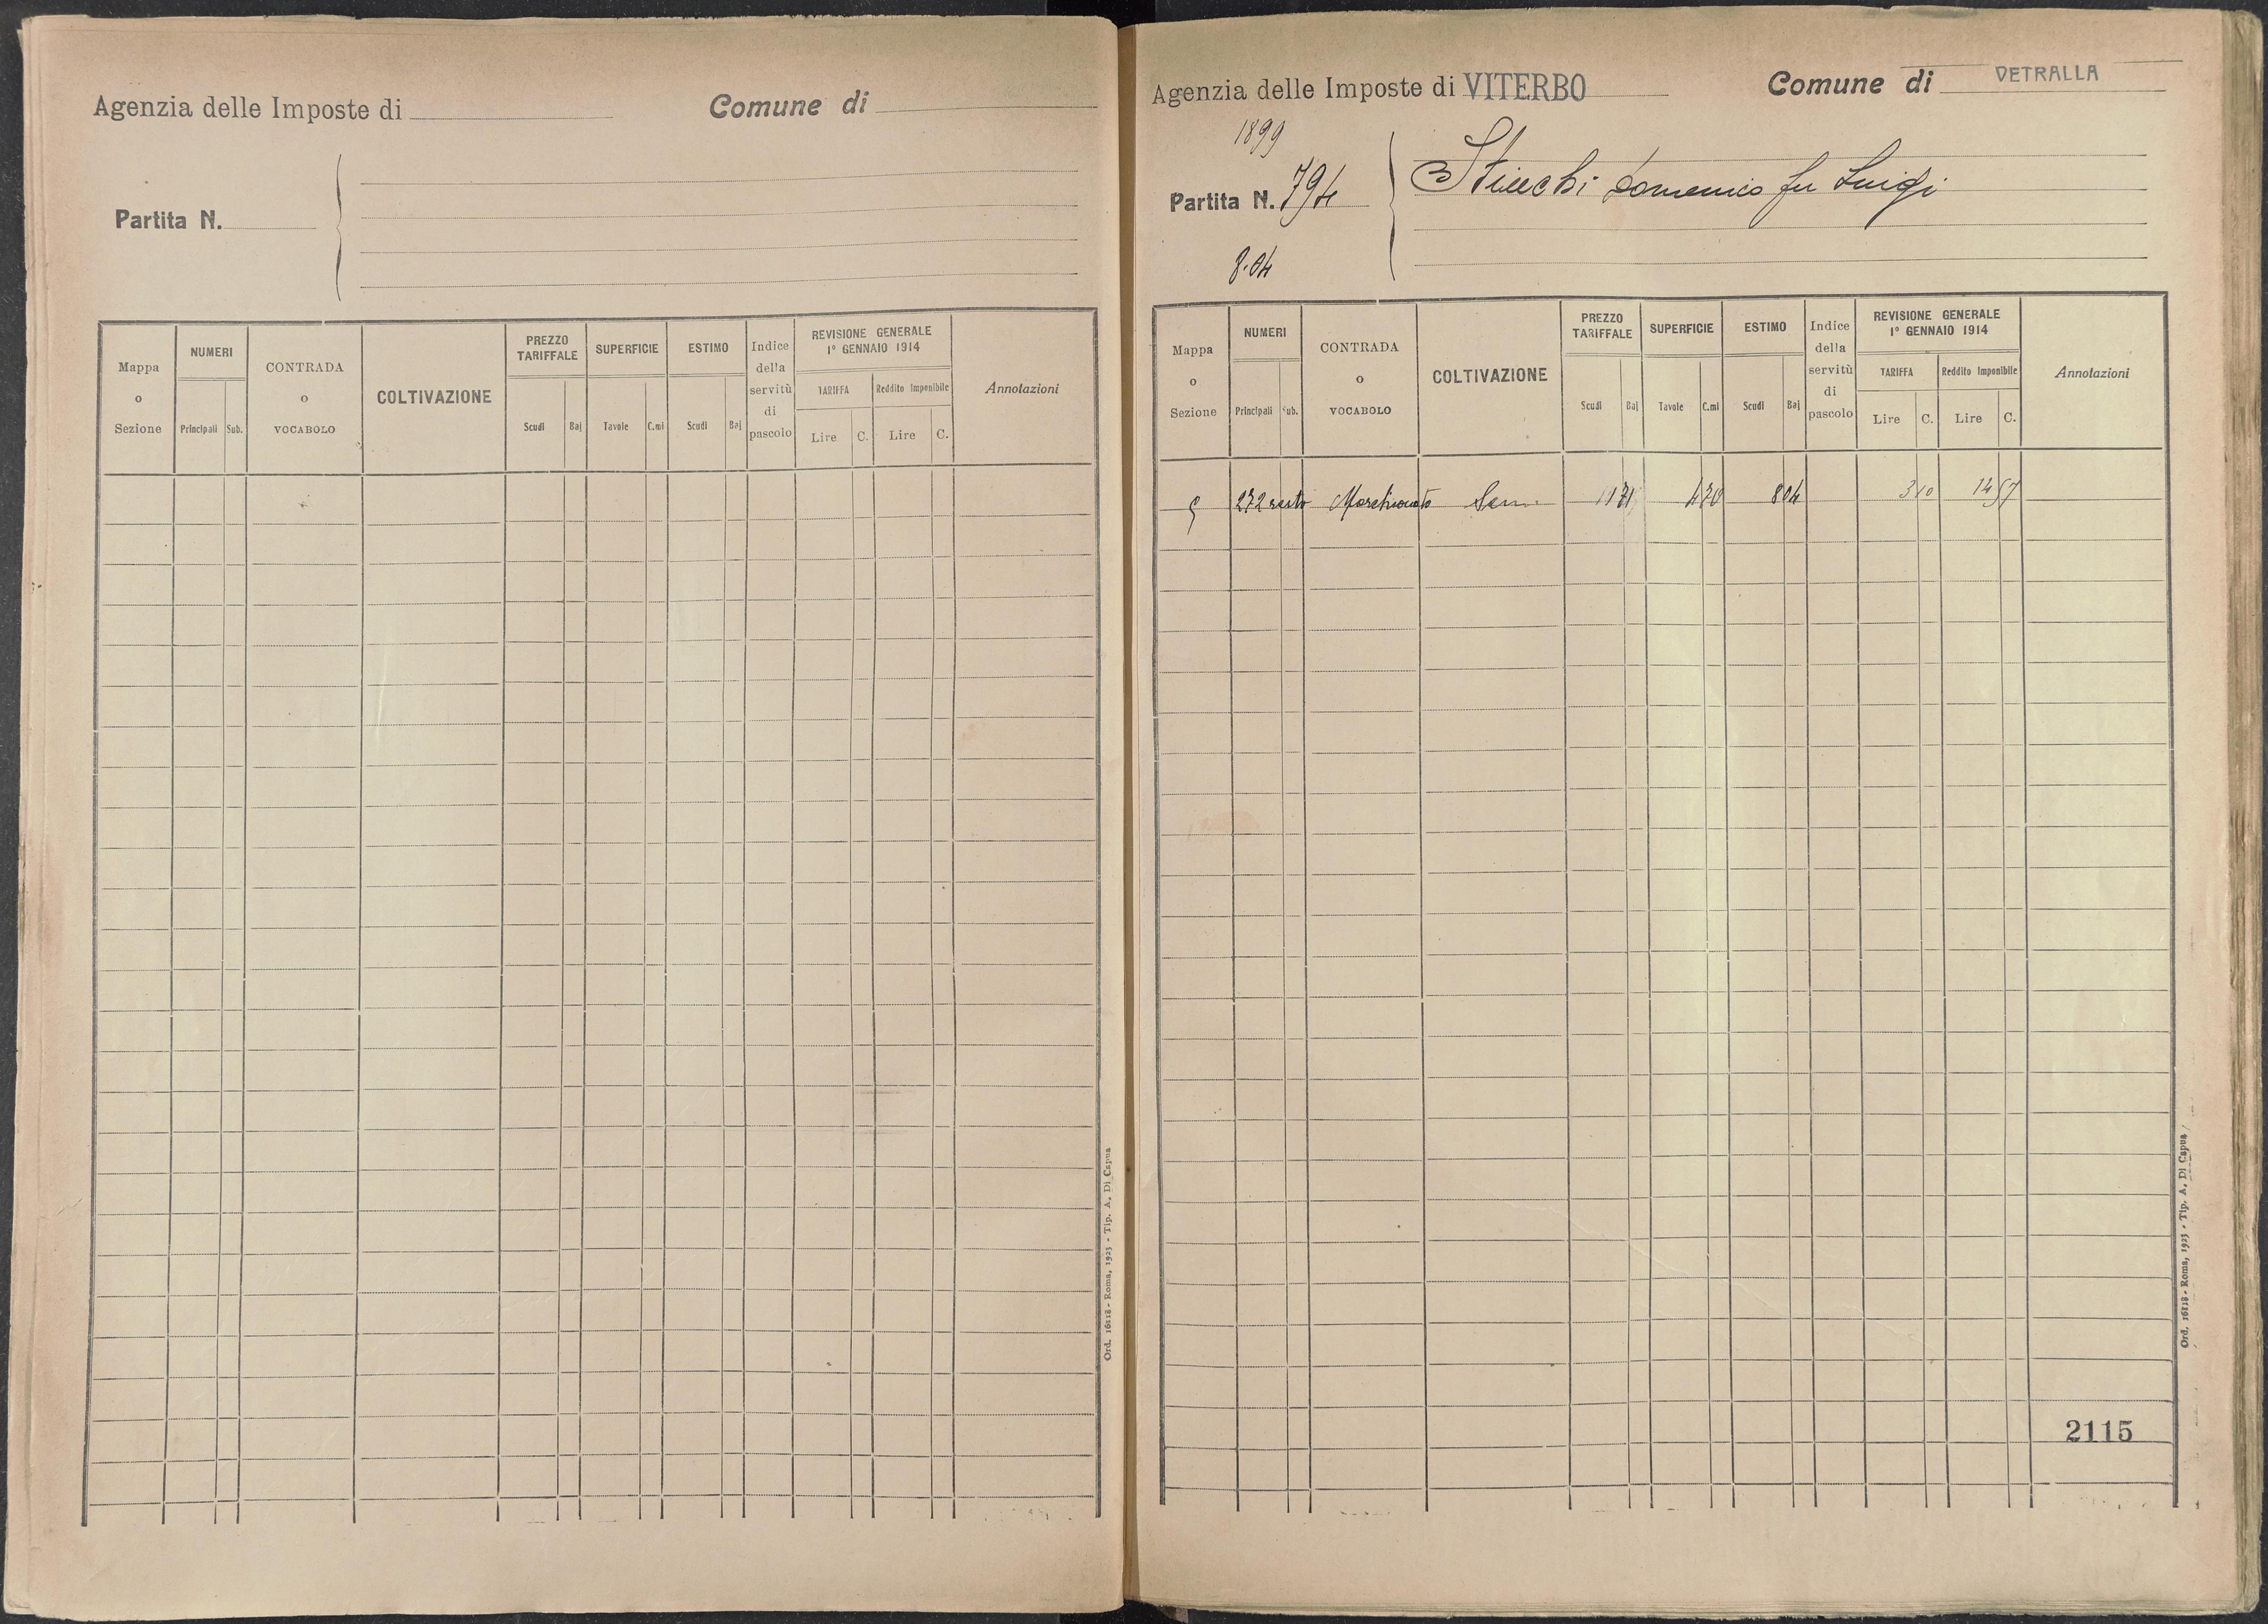 Agenzia delle Imposte di
Comune di
Partita N.
Mappa o Sezione
NUMERI
Principali
Sub.
CONTRADA o VOCABOLO
COLTIVAZIONE
PREZZO TARIFFALE
Scudi
Baj
SUPERFICIE
Tavole
C.mi
ESTIMO
Scudi
Baj
Indice della servitù di pascolo
REVISIONE GENERALE
1º GENNAIO 1914
TARIFFA
Reddito Imponibile
Lire
C.
Lire
C.
Annotazioni
Ord. 16118 - Roma, 1923 - Tip. A. Di Capua
Agenzia delle Imposte di VITERBO
Comune di VETRALLA
1899
Partita N. 794
Domenico fu Luigi
8.04
Mappa o Sezione
NUMERI
Principali
Sub.
CONTRADA o VOCABOLO
COLTIVAZIONE
PREZZO TARIFFALE
Scudi
Baj
SUPERFICIE
Tavole
C.mi
ESTIMO
Scudi
Baj
Indice della servitù di pascolo
REVISIONE GENERALE
1º GENNAIO 1914
TARIFFA
Reddito Imponibile
Lire
C.
Lire
C.
Annotazioni
272 resto Sem. 171 470 804 310 1457
2115
Ord. 16118 - Roma, 1923 - Tip. A. Di Capua